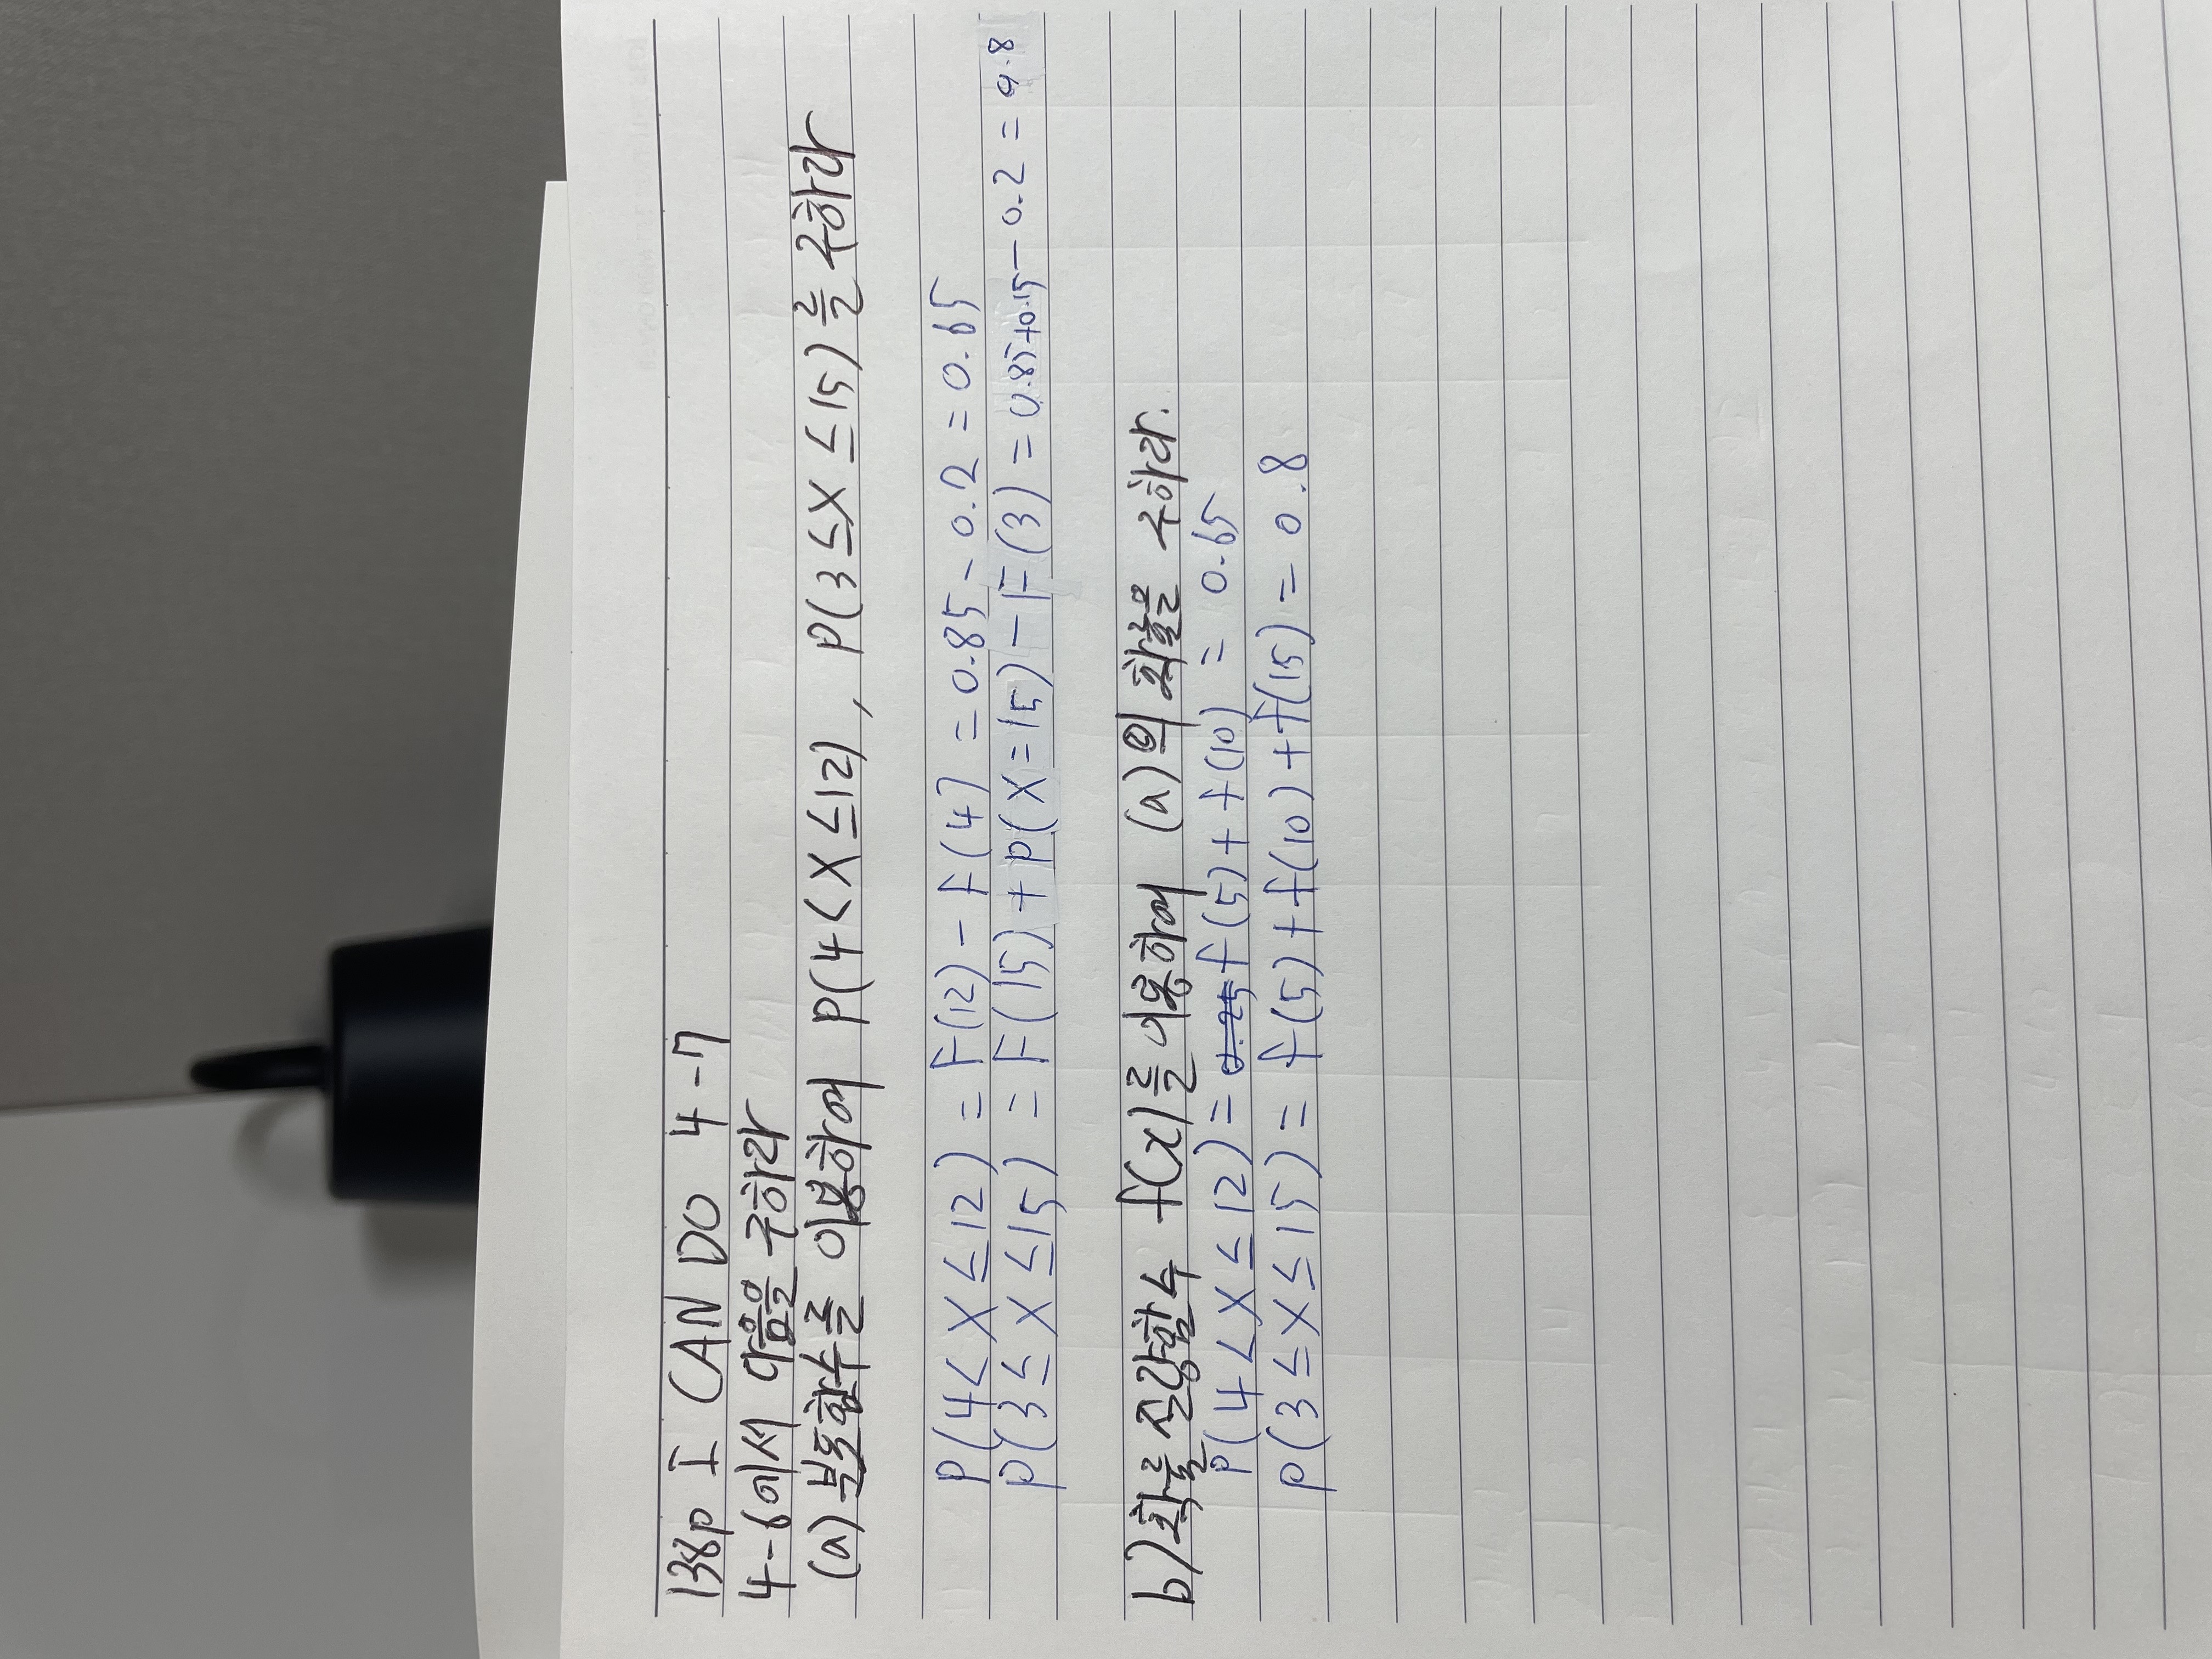 138p I CAN DO 4-7
4-6에서 다음을 구하라
(a) 분포함수를 이용하여 P(4<X≤12), P(3≤X≤15)를 구하라
P(4<X≤12) = F(12) - F(4) = 0.85 - 0.2 = 0.65
P(3≤X≤15) = F(15) + P(X=15) - F(3) = 0.85+0.15 - 0.2 = 0.8
b) 확률 질량함수 f(x)를 이용하여 (a)의 확률을 구하라.
P(4<X≤12) = 0.25 f(5) + f(10) = 0.65
P(3≤X≤15) = f(5) + f(10) + f(15) = 0.8